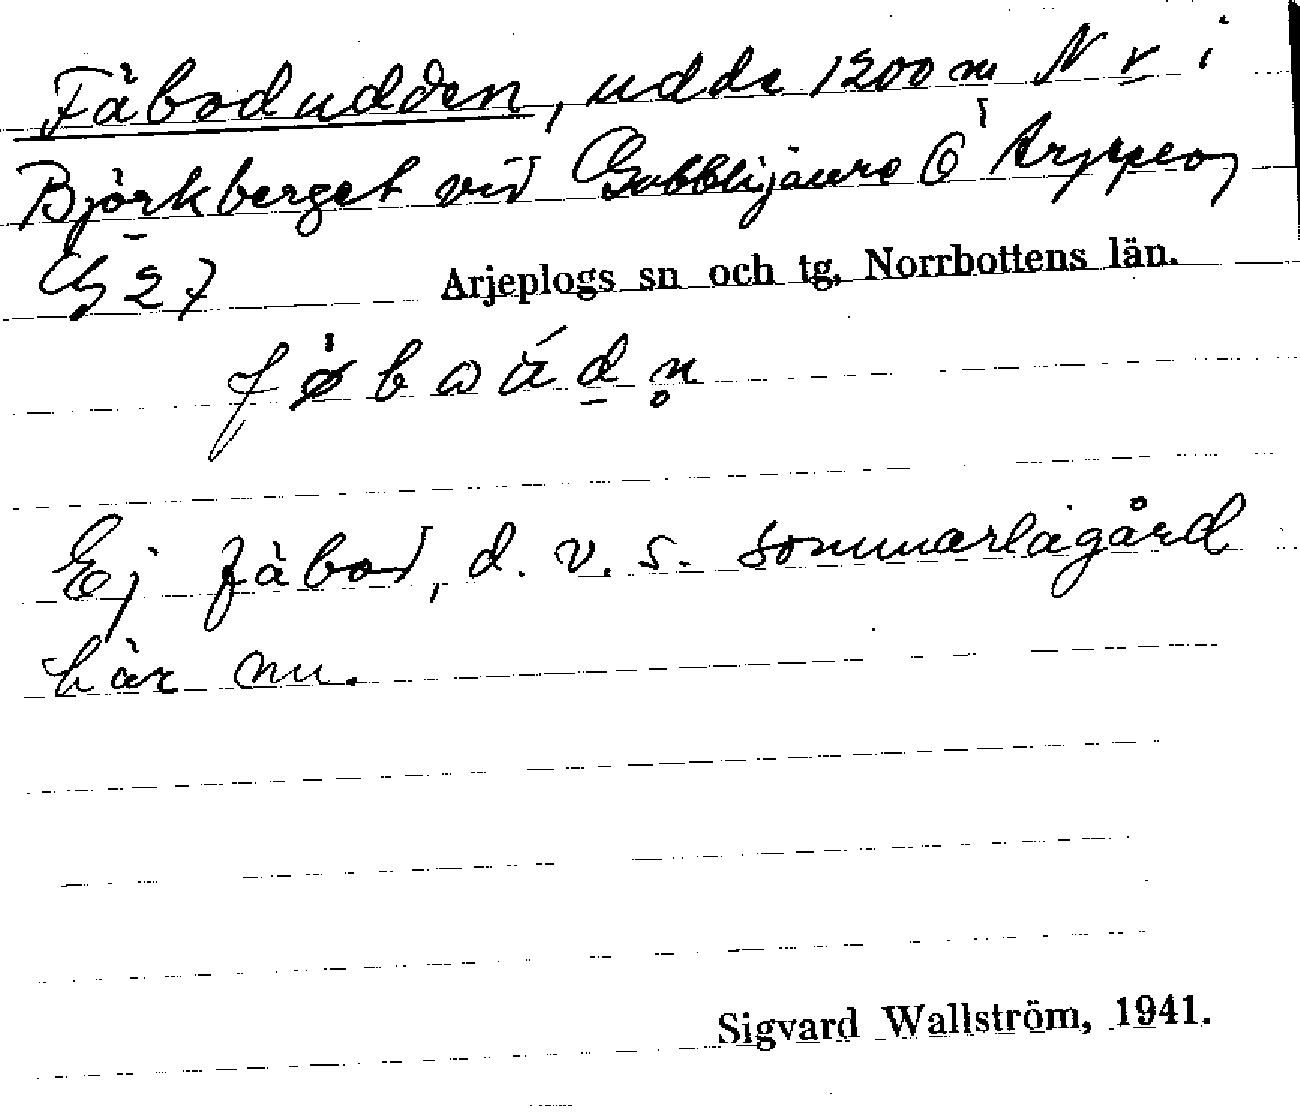 Fäbodudden, udde 1200 m N v i
Björkberget vid Gubblijaure i
G 27
Arjeplogs sn och tg, Norrbottens län.
Ej fäbod, d. v. s. sommarlagård
här nu.
Sigvard Wallström, 1941.